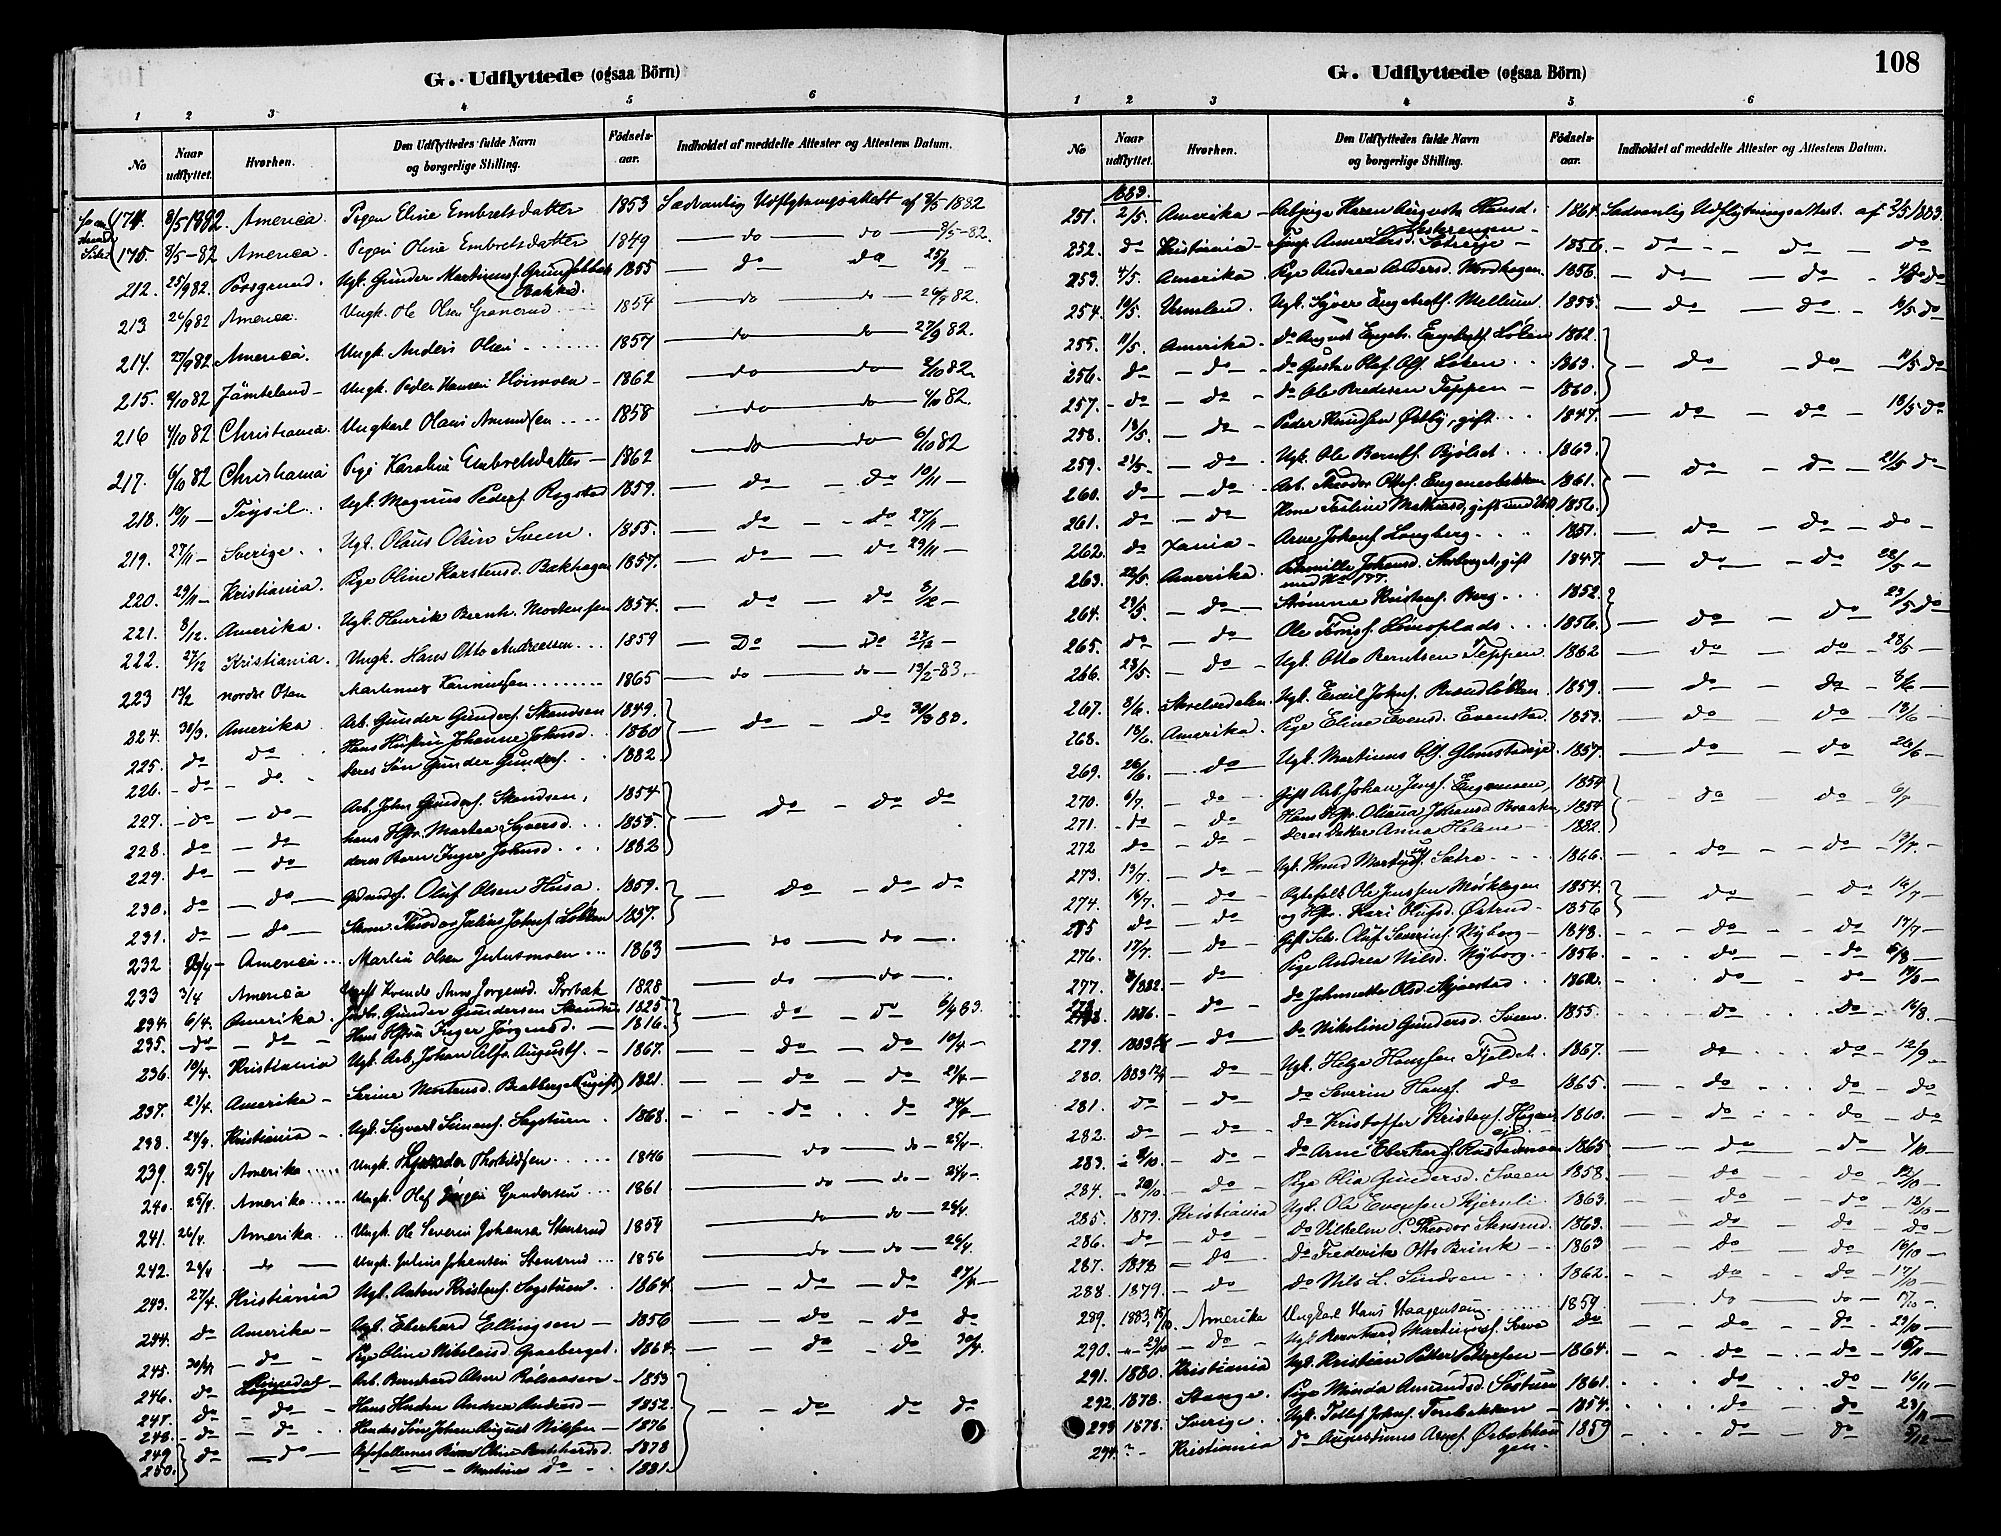 G. Udflyttede (ogsaa Börn)
1 2 3 4 5 6
No Naar udflyttet. Hvorhen. Den Udflyttedes fulde Navn og borgerlige Stilling. Födsels-aar. Indholdet af meddelte Attester og Attestens Datum.
174. 8/5 1882. America. Pigen Eline Embretsdatter 1853 Sædvanlig Udflytningsattest af 8/5 1882
175. 8/5-82 America. Pigen Oline Embretsdatter 1849 — do — do — 8/5-82.
212. 25/9 82. Porsgrund. Ugk. Gunder Martinus. 1855 — do — do 25/9 —
213 26/9 82 America. Ungk. Ole Olsen Granerud 1854 — do — do — 26/9 82.
214. 27/9 82 America. Ungk. Anders Olsen 1857 — do — do 27/9 82.
215. 2/10 82 Jämteland — Ungk. Peder Hansen Höimoen — 1862 — do — do 2/10 82.
216 4/10 82 Christiania Ungkarl Olaus Amundsen 1858 — do — do 4/10 82.
217. 6/10 82 Christiania Pige Karoline Embretsdatter — 1862 — do — do 6/10 82
218. 10/11 — Trysil Ugk. Magnus Peders. Rogstad 1859. — do — do 10/11 —
219. 27/11 — Sverige Ugk. Olaus Olsen Sveen. 1855. — do — do 27/11 —
220. 29/11 — Kristiania. Pige Oline Karstensd. Bækhagen 1857. — do — do 29/11 —
221. 8/12. Amerika. Ugk. Henrik Bernh. Mortensen 1854. — do — do 8/12 —
222. 27/12 Kristiania. Ungk. Hans Otto Andreassen 1859 — Do — Do 27/12 —
223 13/2 nordre Osen Martinus 1865 — do — do — 13/2-83.
224. 30/3. Amerika Arb. Gunder Gunders. Skandsen 1849. — do — do 30/3 83.
225. do do Hans Hustru Johanne Johnsd. 1860
226. — do — do — deres Søn Gunder Gunders. 1882
227. — do — do — Arb. John Gunders. Skandsen, 1854. — do — do do
228. do — do hans Hstr. Marthea Syversd. 1855.
229. do — do deres Barn Inger Johnsd. 1882
230. do — do — Oluf Olsen Husa. 1859. — do — do do
231. do — do — Julius Johns. Løkken 1857.
232 — America Martin Olsen Julusmoen 1863 — do — do —.
233 3/4 America Kvende Anne Jørgensd. Storbæk 1828 — do — do —.
234. 6/4. Amerika. Gunder Gundersen Skandsen 1825 — do — do 6/4 83.
235. — do — do — Hans Hstru Inger Jørgensd. — 1816.
236. 10/4. Kristiania Ugk. Arb. Johan Alfr. Augusts. — 1867. — do — do 10/4 —
237. 21/4. Amerika — Serine Mortensd. Bratberget (ugift) 1821 — do — do 21/4 —
238. 24/4 Kristiania — Ugk. Sigvart Simens. Sagstuen. 1868. — do — do 24/4 —
239. 25/4 Amerika Ungk. Thorkildsen 1846 — do — do — 25/4 —
240. 25/4. Amerika Ungk. Olaf Jørgen Gundersen 1861 — do — do — 25/4 —
241. 26/4. Amerika Ungk. Ole Severin Johansen Stensrud 1859 — do — do — 26/4.
242. 26/4 — do — Ungk. Julius Johansen Stensrud 1856 — do — do — 26/4.
243. 27/4. Kristiania Ugk. Anton Kristens. Sagstuen. 1864. — do — do 27/4 —
244. do Amerika — Ugk. Eberhard Ellingsen — 1856 — do — do do
245. 30/4 — do — Pige Oline Nikolaisd. Graaberget. 1864. — do — do 30/4.
246. do Arb. Bernhard Olsen — 1853 — do — do do
247. do — do — Hans Hustru Andrea Andersd — 1852.
248. — do — do Hendes Søn Johan August Nilsen — 1876
249. do — do — Ægtefællernes Børn Oline Bernhardsd. 1878
250. — — — Martinus do 1881.
G. Udflyttede (ogsaa Börn) 108
1 2 3 4 5 6
No Naar udflyttet. Hvorhen. Den Udflyttedes fulde Navn og borgerlige Stilling. Födsels-aar. Indholdet af meddelte Attester og Attestens Datum.
1883.
251. 2/5. Amerika — Arbpige Karen Augusta Hansd. 1864. Sædvanlig Udflytningsattest af 2/5 1883.
252. do Kristiania — Pige Anne Larsd. — 1856. — do — do — do
253. 4/5. Amerika Pige Andrea Andersd. Nordhagen. 1856. — do — do 4/5 do
254. 10/5. Vermland. Ugk. Syver Engebrets. Mellum. 1855. — do — do 10/5 do
255. 11/5. Amerika — do August Engebrets. Løken 1862.
256. do — do — do Gustav Olaf Ols. Løken — 1863. — do — do 11/5 do
257. — do — do — do Ole Pedersen Teppen — 1860.
258. 18/5. — do — Peder Knudsen Østby, gift 1847. — do — do — 18/5 do
259. 21/5. — do — Ugk. Ole Bernts. Bjølset 1863. — do — do — 21/5 do
260. do — do — Arb. Theodor Ottos. Eugenesbakken 1861.
261. do — do — Kone Pauline Mathiasd, gift med 1856.
262. do Xania — Arne Johans. Longberg. 1867. — do — do — do —
263. 22/5. Amerika. Pernille Johansd. gift med No 177. 1847. — do — do 22/5 —
264. 23/5. — do — Kristens. Berg. 1852. — do — do 23/5 do
265. do — do — Ole 1856.
266. 23/5. — do — Ugk. Otto Berntsen Teppen 1862 — do — do 28/5 —
267. 8/6. Ugk. Emil Johns. 1859. — do — do 8/6 —
268. 18/6. Amerika. Pige Eline Evensd. Evenstad. 1853. — do — do 18/6 —
269. 26/6. — do Ugk. Martinus Ols. 1857. — do — do 26/6 —
270. 6/7. — do — Gift Arb. Johan Jens. Eugenesen, 1854 — do — do — 6/7
271. — do — do — Hans Hstr. Oliana Johansd Braaten, 1854
272 — do — do deres Datter Anna Helene — 1882.
273. 13/7. — do — Ugk. 1866. — do — do — 13/7.
274. 16/7. — do — Ægtefolk Ole Jenssen Mørkhagen 1854. — do — do 16/7
275 do — do og Hstr. Kari Olufsd. Østrud — 1856
276. 17/7. — do — Gift Oluf Severins. Nyborg — 1848. — do — do — 17/7 —
277. 1882. — do — Pige Andrea Nilsd. Nyborg — 1856. — do — do 6/8 —
278. 1886. — do — do Johannette Olsd. 1862. — do — do 14/8 —
279. 1883 — do — do Nikoline Gundersd. Sveen 1855. — do — do 14/8. —
280. 1883 12/9 — do — Ugk. Helge Hanssen Fjeldet. 1867. — do — do — 12/9 —
281. do — do — do Severin Hans. do 1865. — do — do — do
282. do — do — do Kristoffer Kristens. 1860. — do — do — do
283. — 2/10. — do — do Arne Eberhards. Rustadmoen 1865 — do — do 2/10
284. — 20/10. — do — Pige Olia Gundersd. Sveen 1858. — do — do 12/10 —
285. 1879. Kristiania Ugk. Ole Evensen Hjernli 1863. — do — do 12/10 —
286. do — do — do Vilhelm P. Theodor Stensrud. 1863. — do — do do
287. 1878 — do — do Frederik Otto Brink — 1863 — do — do 16/10 —
288. 1879. — do — do Nils L. Lindsøe 1862. — do — do 17/10 —
289. 1883, 15/10. Amerika Ungkarl Hans Haagensen 1859. — do — do — 17/10 —
290. — 29/10 — do — Ugk. Bernhard Martinius. do — do — do 29/10 —
291. 1880. Kristiania Ugk. Kristian Petter Pettersen — 1864. — do — do
292 1878. Stange. Pige Minda Amundsd. Søstuen 1861. — do — do — 16/11 —
293 1878. Sverige. Ugk. Tollef Johns. Torebakken — 1854. — do — do 23/11 —
294. ? — Kristiania do Augustinus Arnes. 1859 — do — do 5/12 —